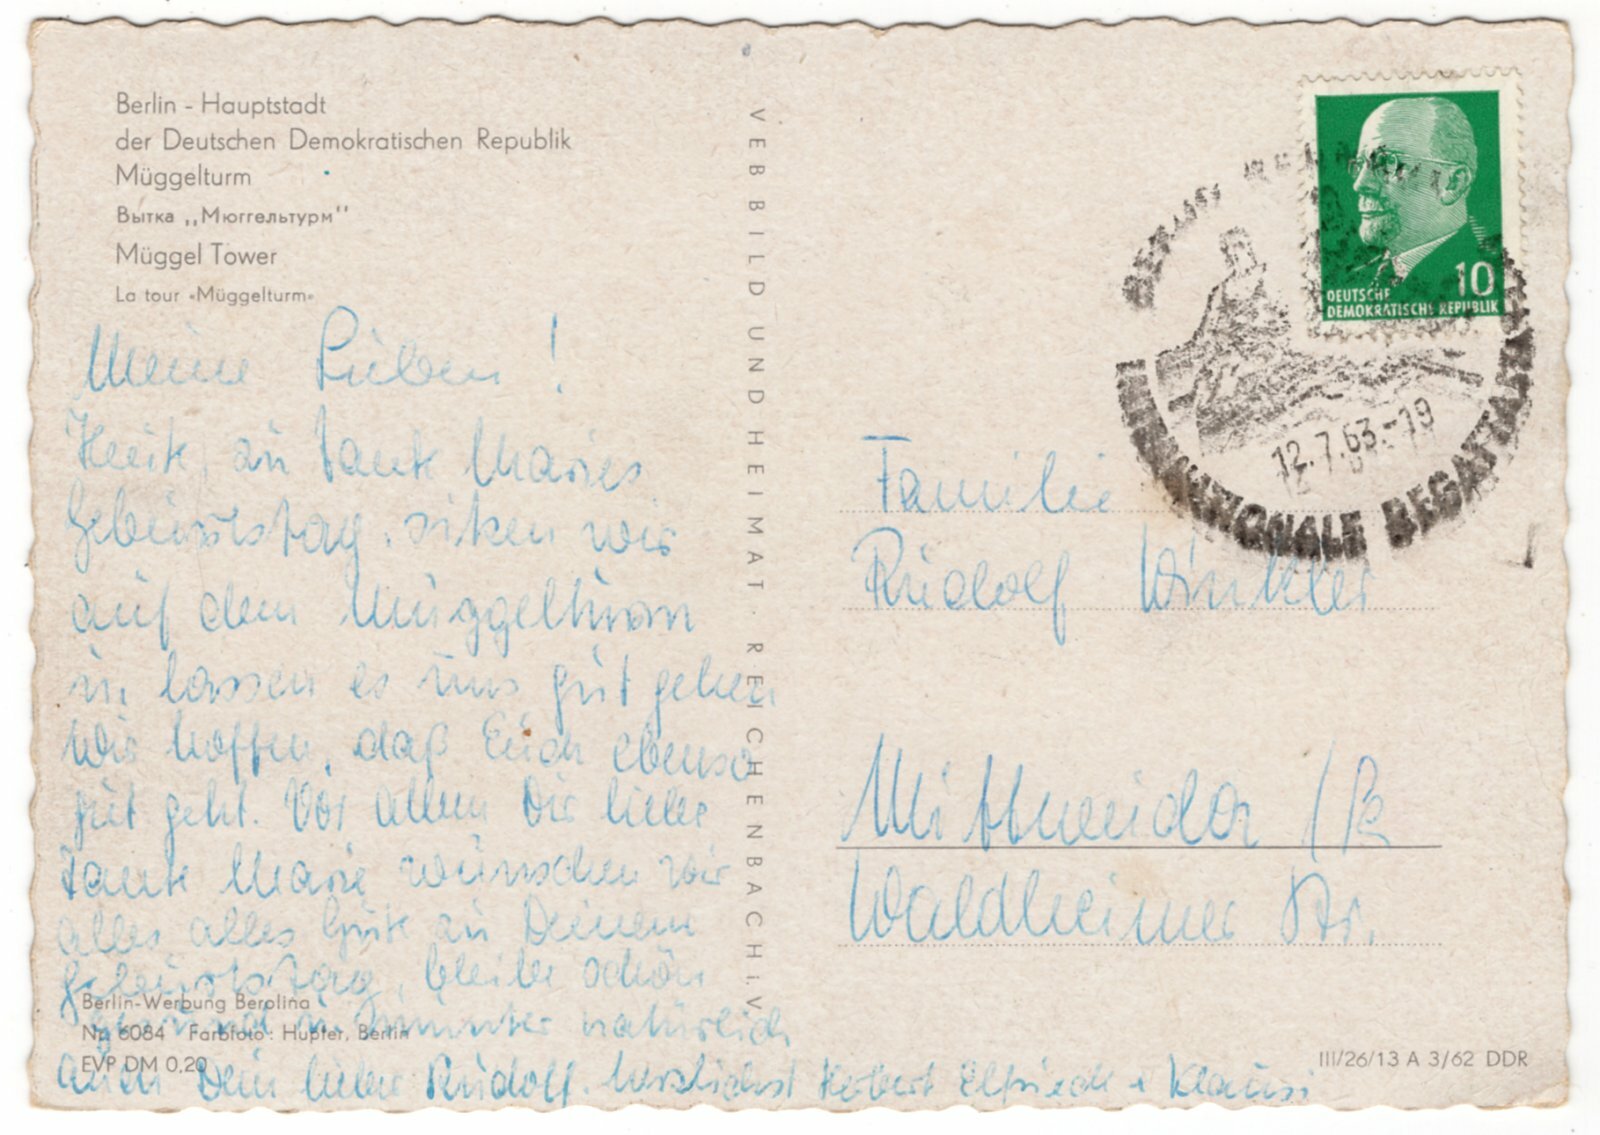 Berlin - Hauptstadt
der Deutschen Demokratischen Republik
Müggelturm
Вытка „Мюггельтурм"
Müggel Tower
La tour «Müggelturm»
Meine Lieben!
Heute, zu Tante Maries
Geburtstag, sitzen wir
auf dem Müggelturm
u. lassen es uns gut gehen
Wir hoffen, daß Euch ebenso
gut geht. Vor allem Dir liebe
Tante Marie wünschen wir
alles alles Gute zu Deinem
Geburtstag, bleibe schön
gesund u. munter natürlich
auch Dein lieber Rudolf. herzlichst Herbert Elfriede + Klausi
Berlin-Werbung Berolina
Nr. 6084 Farbfoto: Hupfer, Berlin
EVP DM 0,20
VEB BILD UND HEIMAT · REICHENBACH i. V.
10
DEUTSCHE
DEMOKRATISCHE REPUBLIK
12.7.63.-19
INTERNATIONALE REGATTA
Familie
Rudolf Winkler
Mittweida
Waldheimer Str.
III/26/13 A 3/62 DDR